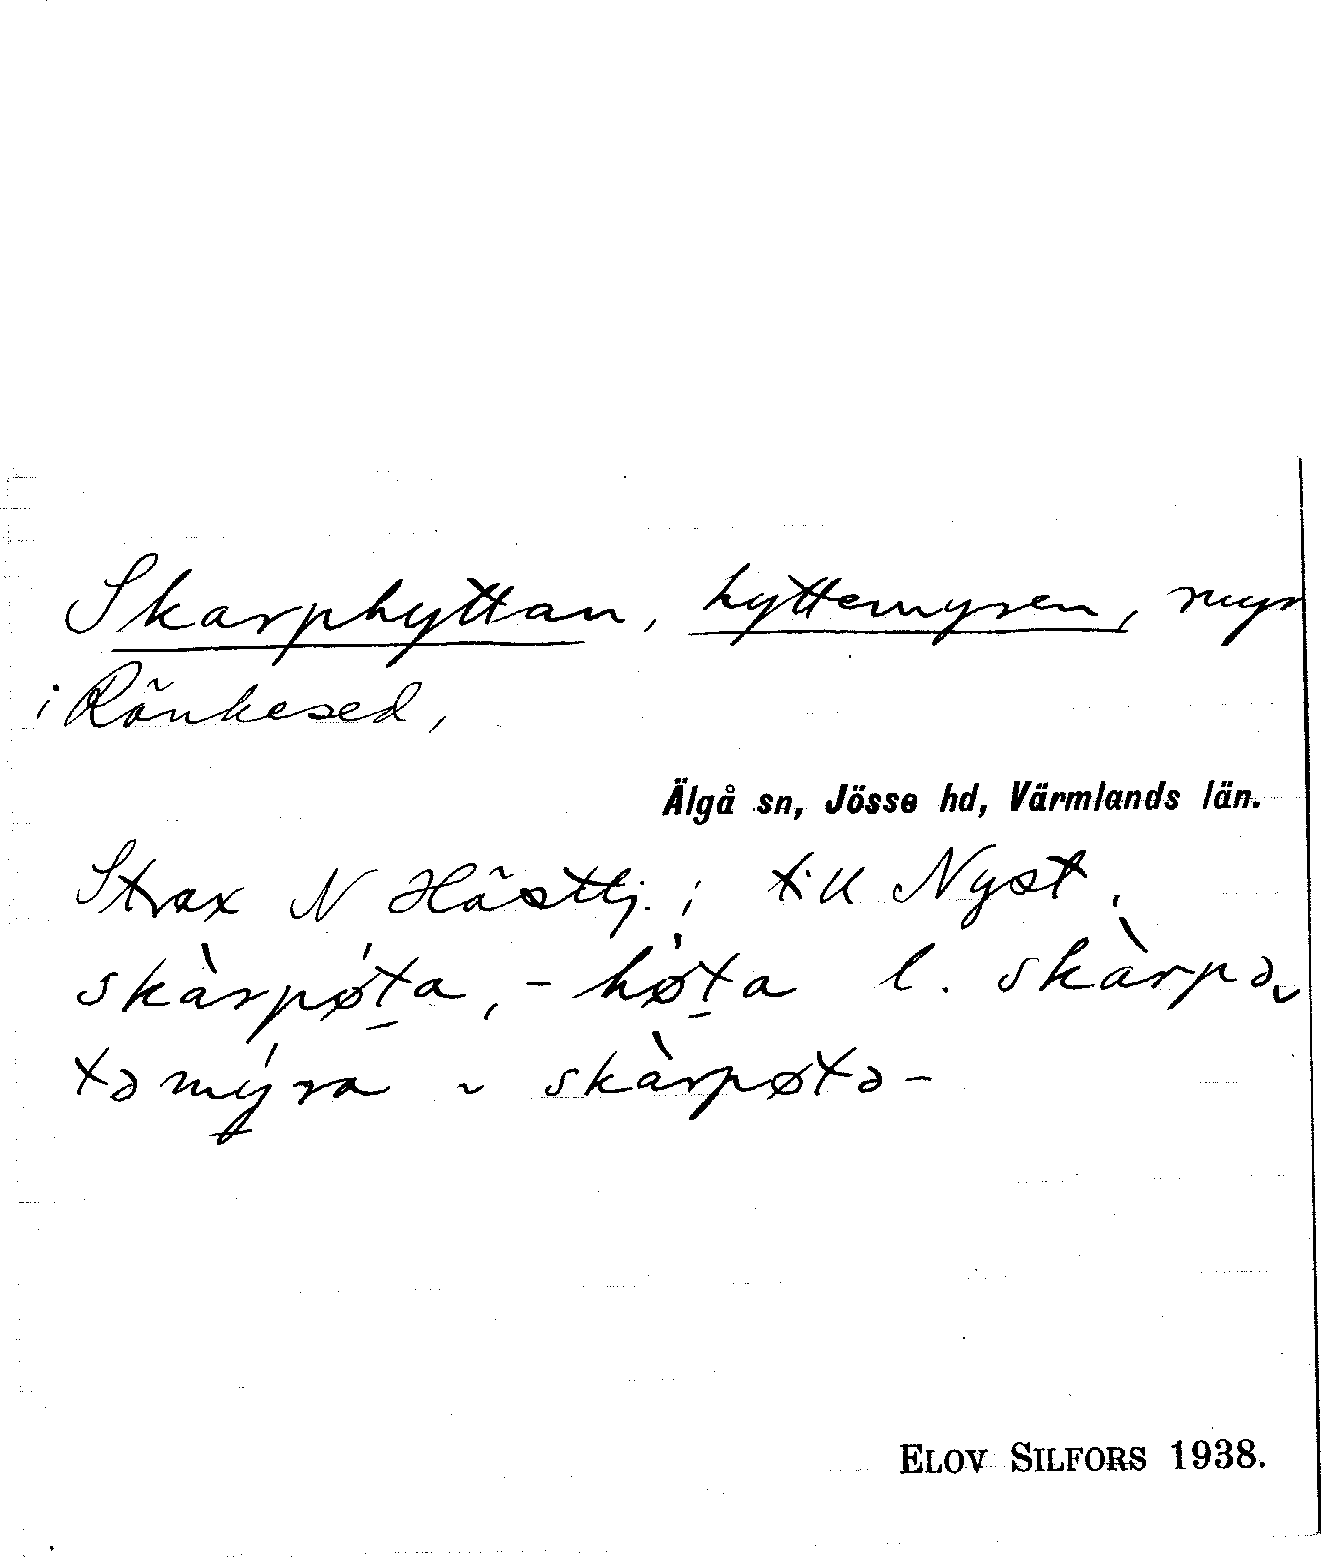 Skarphyttan, hyttemyren, myr
i Rönkesed,
Älgå sn, Jösse hd, Värmlands län.
Strax N Hästtj.; till Nyst.
skàrpǿt̠a, -hǿt̠a l. skàrpə
təmýra ~ skàrpøtə-
ELOV SILFORS 1938.